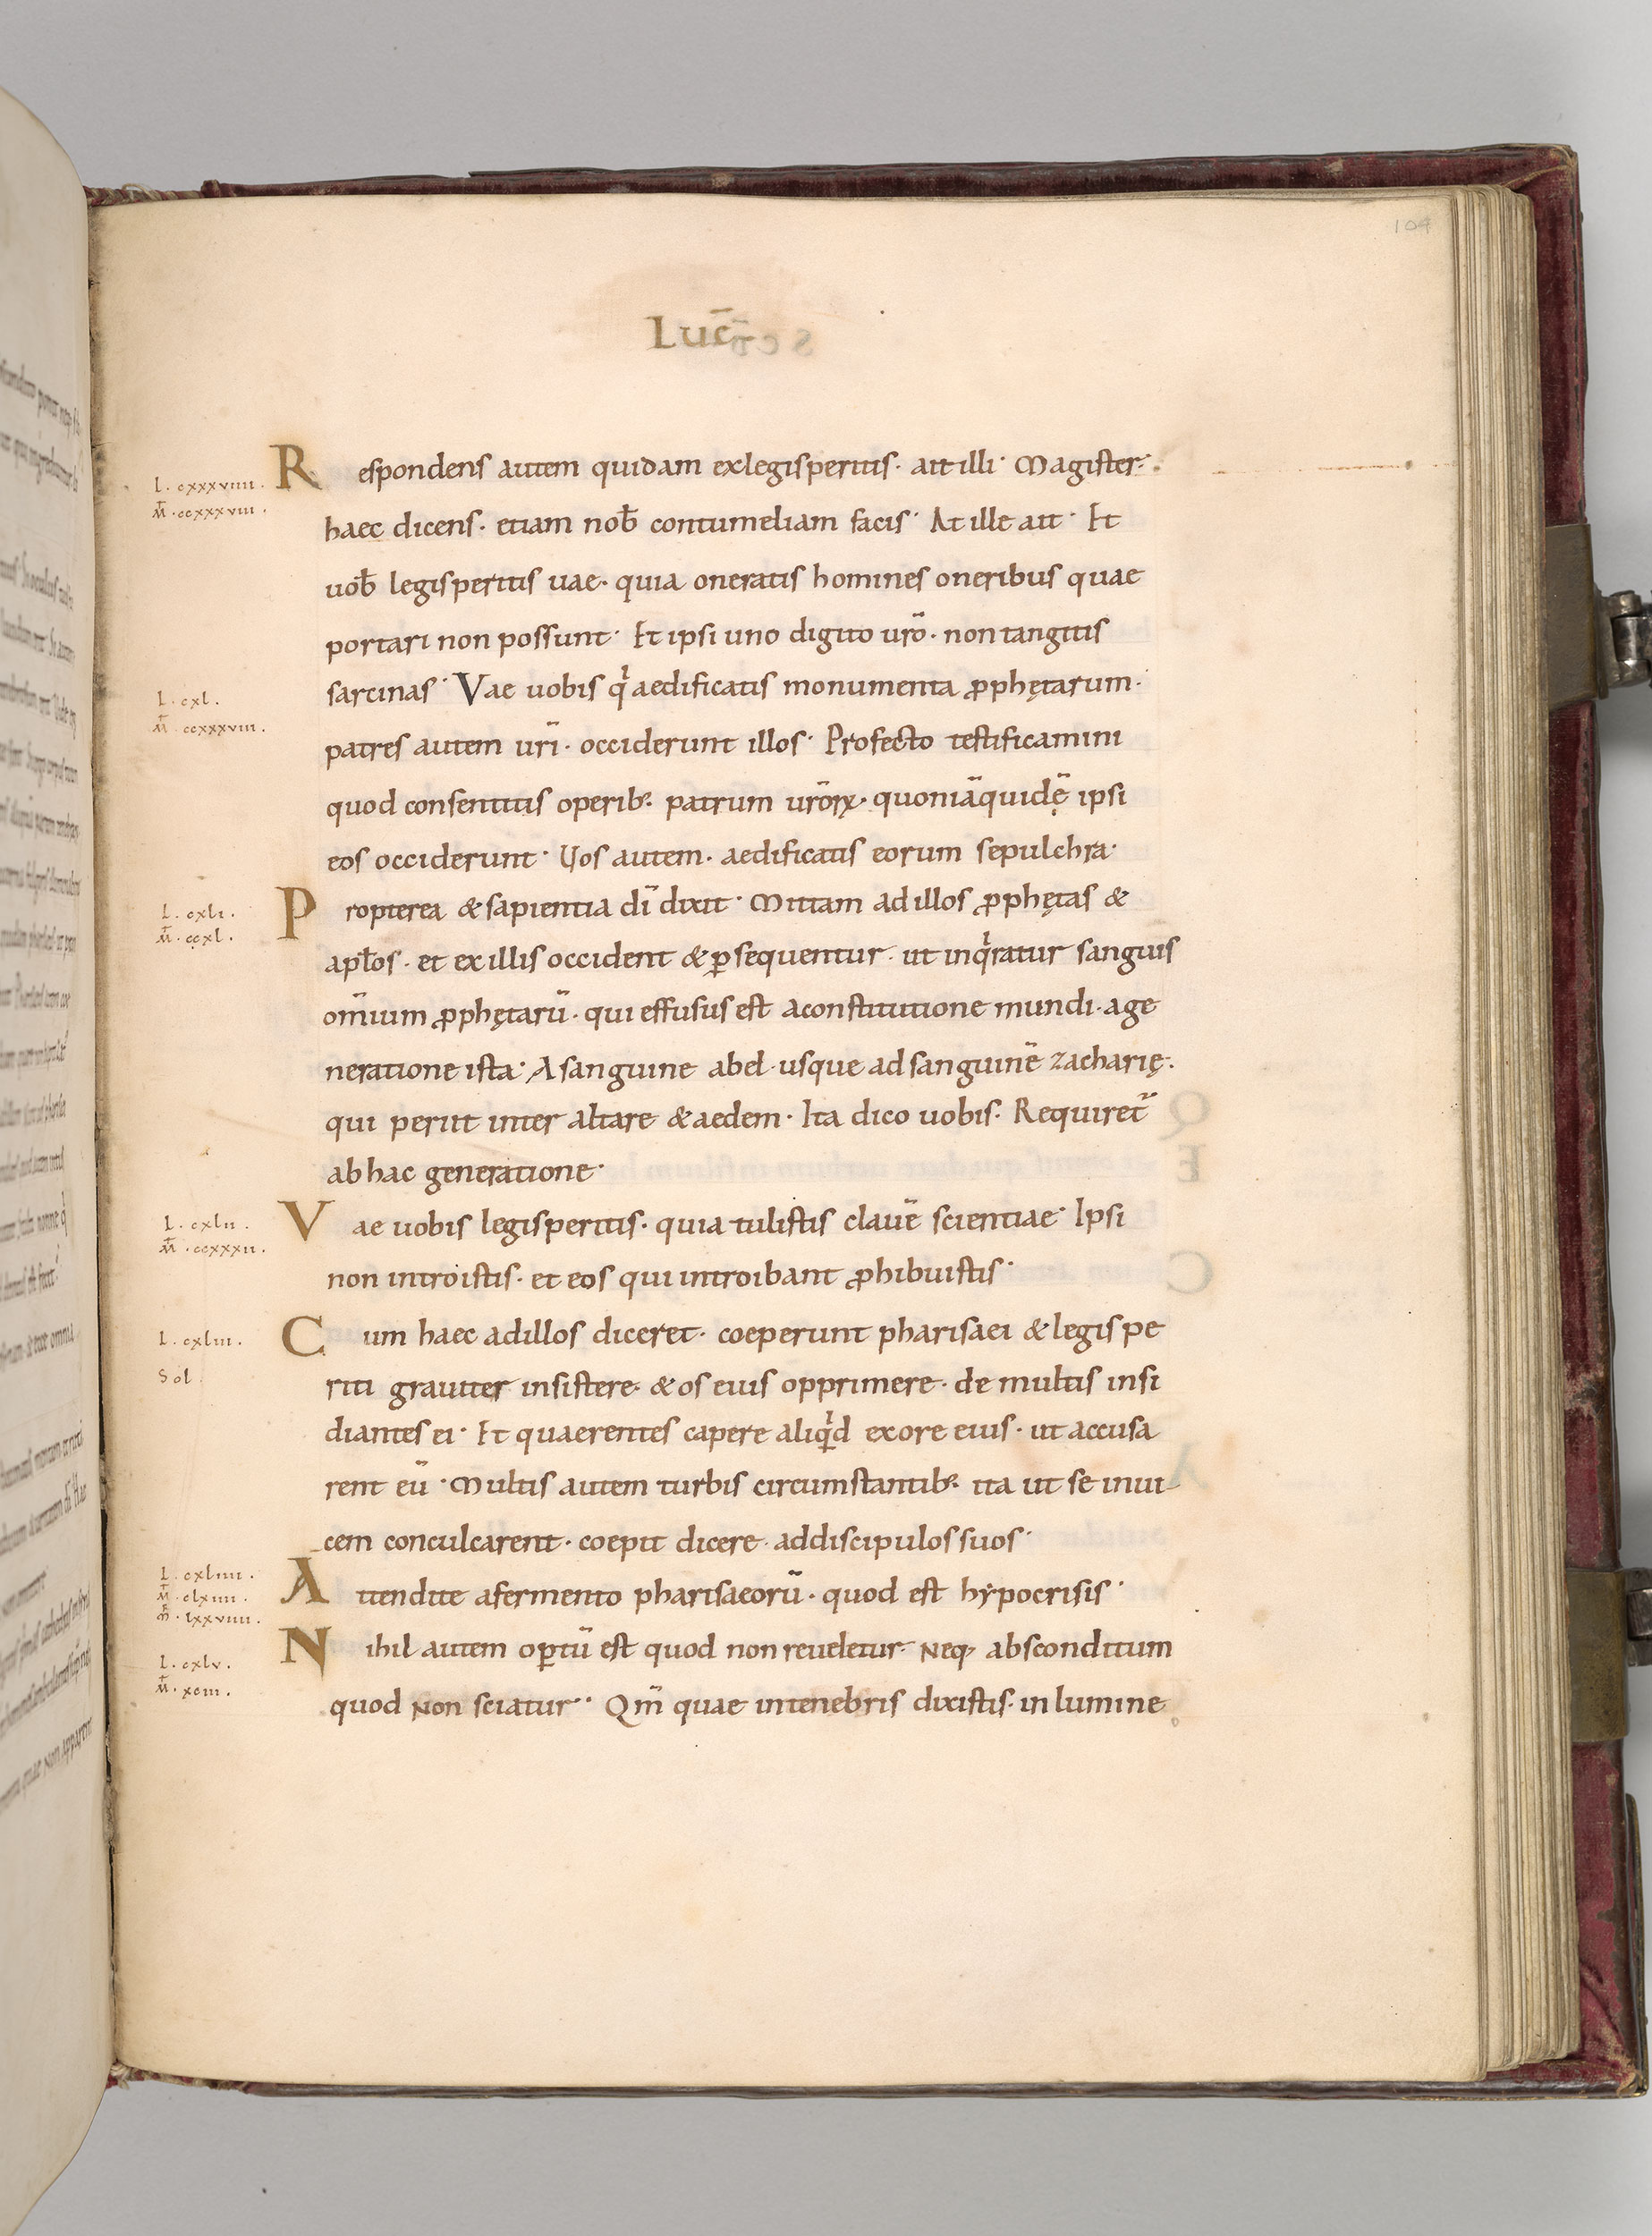 104
Luc̄
Respondens autem quidam ex legisperitis· ait illi· Magister·
L· cxxxviiii·
M̄· ccxxxviii·
haec dicens· etiam nob̄ contumeliam facis· At ille ait· Et
uob̄ legisperitis uae· quia oneratis homines oneribus quae
portari non possunt· Et ipsi uno digito urō· non tangitis
sarcinas· Vae uobis qi aedificatis monumenta ꝓphętarum·
L· cxl·
M̄· ccxxxviii·
patres autem urī· occiderunt illos· Profecto testificamini
quod consentitis operib;· patrum urōꝝ· quoniāquidę̄ ipsi
eos occiderunt· Uos autem· aedificatis eorum sepulchra·
Propterea & sapientia dī dixit· Mittam ad illos ꝓphętas &
L· cxli·
M̄· ccxl·
apłos· et ex illis occident & ꝑsequentur· ut inqiratur sanguis
om̄ium ꝓphętarū· qui effusus est a constitutione mundi· a ge
neratione ista· A sanguine abel· usque ad sanguinē zacharię·
qui periit inter altare & aedem· Ita dico uobis· Requiret̄
ab hac generatione·
Vae uobis legisperitis· quia tulistis clauē scientiae· Ipsi
L· cxlii·
M̄· ccxxxii·
non introistis· et eos qui introibant ꝓhibuistis·
Cum haec ad illos diceret· coeperunt pharisaei & legispe
L· cxliii·
Sol
riti grauiter insistere· & os eius opprimere· de multis insi
diantes ei· Et quaerentes capere aliqid ex ore eius· ut accusa
rent eū· Multis autem turbis circumstantib;· ita ut se inui
cem conculcarent· coepit dicere· ad discipulos suos·
Attendite a fermento pharisaeorū· quod est hypocrisis·
L· cxliiii·
M̄· clxiiii·
m̄· lxxviiii·
Nihil autem oꝑtū est quod non reueletur· Neq; absconditum
L· cxlv·
M̄· xciii·
quod Non sciatur· Qm̄ quae in tenebris dixistis· in lumine